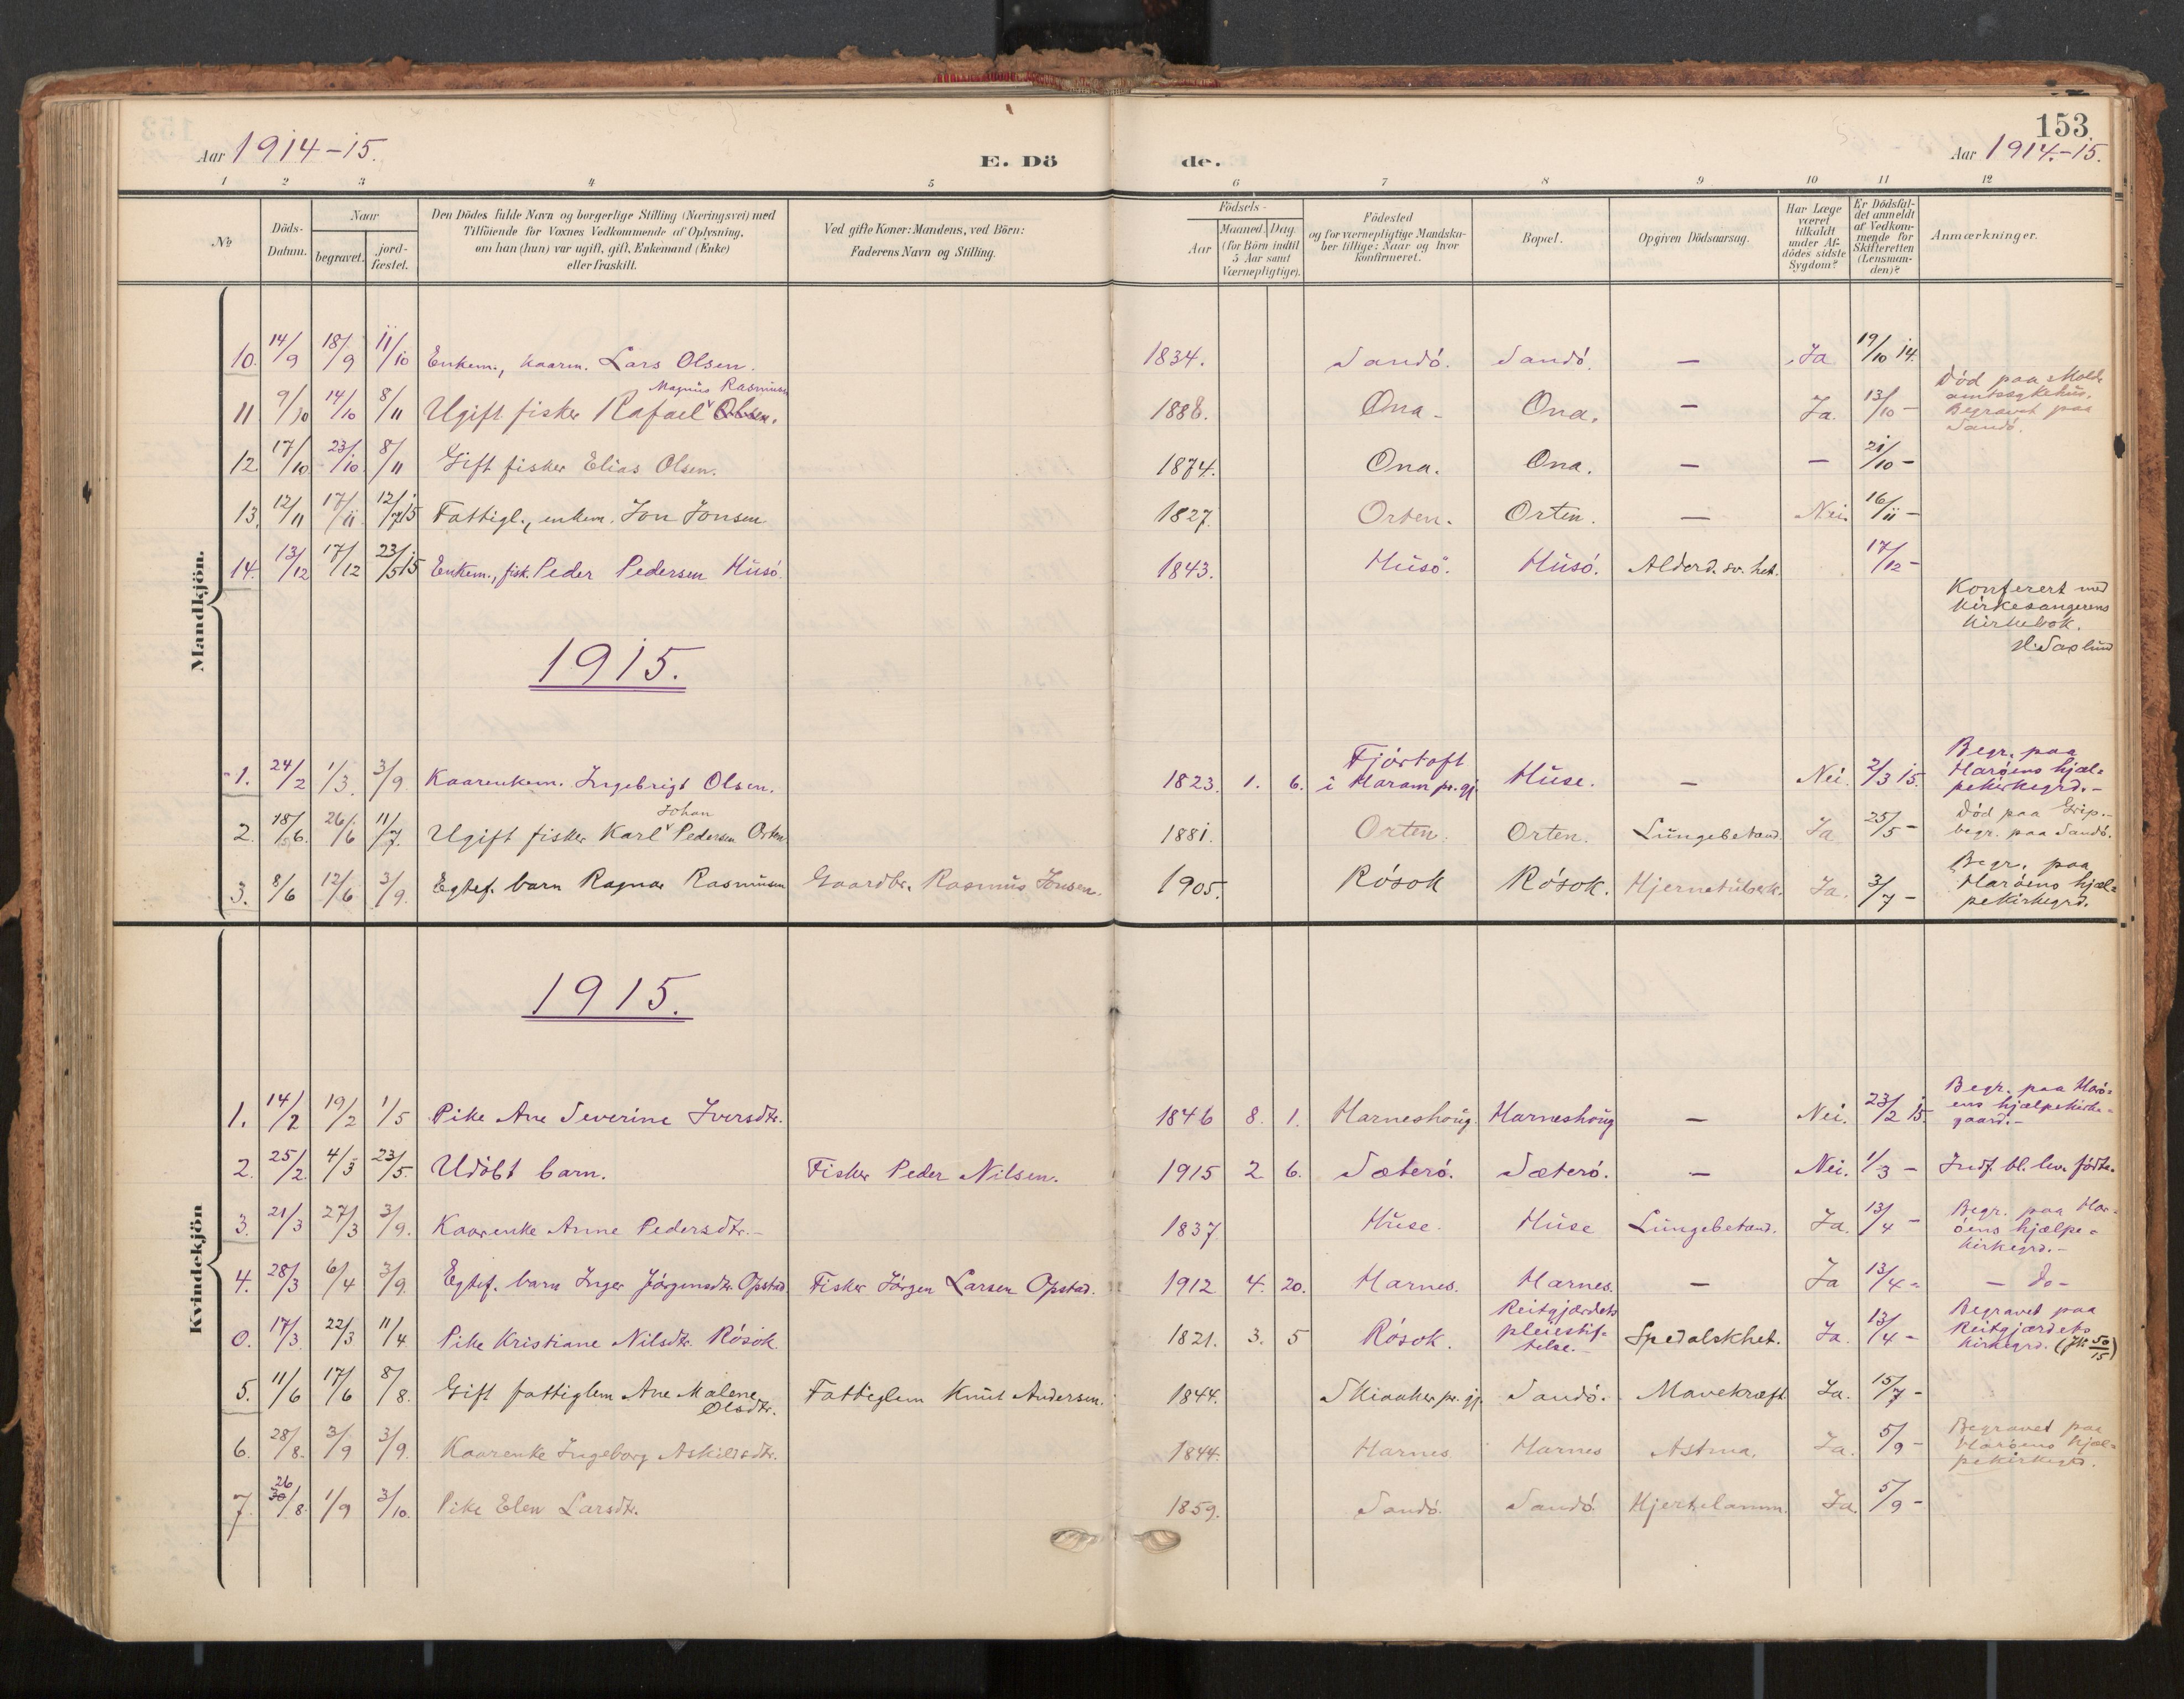 153.
Aar 1914-15.
E. Dö
de.
Aar 1914.-15.
1 2 3 4 5 6 7 8 9 10 11 12
№
Döds-
Datum.
Naar
begravet.
jord-
fæstet.
Den Dödes fulde Navn og borgerlige Stilling (Næringsvei) med
Tilföiende for Voxnes Vedkommende af Oplysning,
om han (hun) var ugift, gift, Enkemand (Enke)
eller fraskilt.
Ved gifte Koner: Mandens, ved Börn:
Faderens Navn og Stilling.
Födsels-
Aar
Maaned. Dag.
(for Börn indtil
5 Aar samt
Værnepligtige).
Födested
og for værnepligtige Mandska-
ber tillige: Naar og hvor
konfirmeret.
Bopæl.
Opgiven Dödsaarsag.
Har Læge
været
tilkaldt
under Af-
dödes sidste
Sygdom?
Er Dödsfal-
det anmeldt
af Vedkom-
mende for
Skifteretten
(Lensman-
den)?
Anmærkninger.
Mandkjön.
10. 14/9 18/9 11/10 Enkem., kaarm. Lars Olsen. 1834. Sandö. Sandö. — Ja 19/10 14.
Magnus Rasmussen
11 9/10 14/10 8/11 Ugift fisker Rafael ˅ Olsen. 1888. Ona. Ona. — Ja. 13/10 -
Död paa Molde
amtssykehus.
Begravet paa
Sandö.
12 17/10 23/10 8/11 Gift fisker Elias Olsen. 1874. Ona. Ona. — — 21/10 -
13. 12/11 17/11 12/7 15 Fattigl., enkem. Jon Jonsen 1827. Orten. Orten. — Nei. 16/11 -
14. 13/12 17/12 23/5 15 Enkem., fisk. Peder Pedersen Husö. 1843. Husö. Husö. Alderd. sv. het. 17/12 -
Konferert med
kirkesangerens
kirkebok.
1915.
1. 24/2 1/3. 3/9. Kaarenkem. Ingebrigt Olsen. 1823. 1. 6. Fjörtoft
i Haram pr.gj. Huse. — Nei. 2/3 15.
Begr. paa
Haröens hjæl=
pekirkegrd.-
Johan
2. 18/6. 26/6 11/7. Ugift fisker Karl ˅ Pedersen Orten 1881. Orten. Orten. Lungebetænd. Ja 25/5 -
Död paa Grip.-
begr. paa Sandö.
3. 8/6 12/6 3/9. Egtef. barn Ragnar Rasmussen Gaardbr. Rasmus Jonsen. 1905. Rösok Rösok. Hjernetuberk. Ja. 3/7 -
Begr. paa
Haröens hjæl=
pekirkegrd.
Kvindekjön
1915.
1. 14/2 19/2 1/5 Pike Ane Severine Iversdtr. 1846 8. 1. Harneshoug. Harneshoug — Nei. 23/2 15.
Begr. paa Harö=
ens hjælpekirke=
gaard.-
2. 25/2. 4/3 23/5. Udöbt barn. Fisker Peder Nilsen. 1915 2 6. Sæterö. Sæterö. — Nei. 1/3 - Indf. bl. lev. födte.
3. 21/3 27/3 3/9. Kaarenke Anne Pedersdtr.- 1837 Huse. Huse Lungebetænd. Ja. 13/4 -
Begr. paa Har=
öens hjælpe=
kirkegrd.-
4. 28/3 6/4 3/9. Egtef. barn Inger Jörgensdtr. Opstad. Fisker Jörgen Larsen Opstad. 1912 4. 20. Harnes. Harnes. — Ja 13/4 - — do-
0. 17/3. 22/3 11/4 Pike Kristiane Nilsdtr. Rösok. 1821. 3. 5 Rösok. Reitgjærdets
pleiestif=
telse.- Spedalskhet. Ja. 13/4 -
Begravet paa
Reitgjærdets
kirkegrd. (jk. 50/15)
5. 11/6 17/6 8/8. Gift fattiglem Ane Malene
Olsdtr. Fattiglem Knut Andersen. 1844. Skiaaker pr. gj. Sandö. Mavekræft Ja. 15/7 -
6. 28/8. 3/9 3/9. Kaarenke Ingeborg Askildsdtr. 1844. Harnes. Harnes Astma. Ja. 5/9 -
Begravet paa
Haröens hjæl=
pekirkegrd.
26
7. 30/8. 1/9 3/10. Pike Elen Larsdtr. 1859. Sandö. Sandö Hjertelamm. Ja. 5/9 -